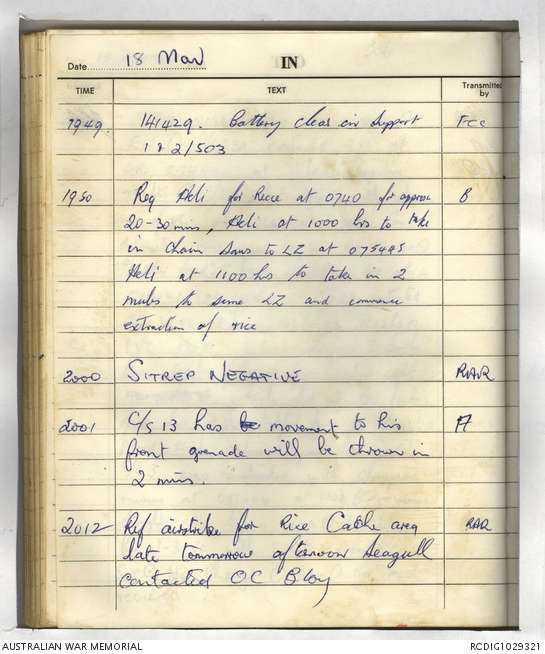 Date 18 Mar IN
TIME TEXT Transmitted by
1949 141429. Battery clear in support FCC
1 & 2/503
1950 Req Heli for Recce at 0740 for approx B
20-30 mins, Heli at 1000 hrs to take
in chain saws to LZ at 075495
Heli at 1100 hrs to take in 2
mules to same LZ and commence
extraction of rice
2000 SITREP NEGATIVE RAR
2001 C/S 13 has movement to his A
front grenade will be thrown in
2 mins.
2012 Ref airstrike for Rice Cache area RAR
late tommorrow afternoon Seagull
contacted OC B Coy
AUSTRALIAN WAR MEMORIAL RCDIG1029321